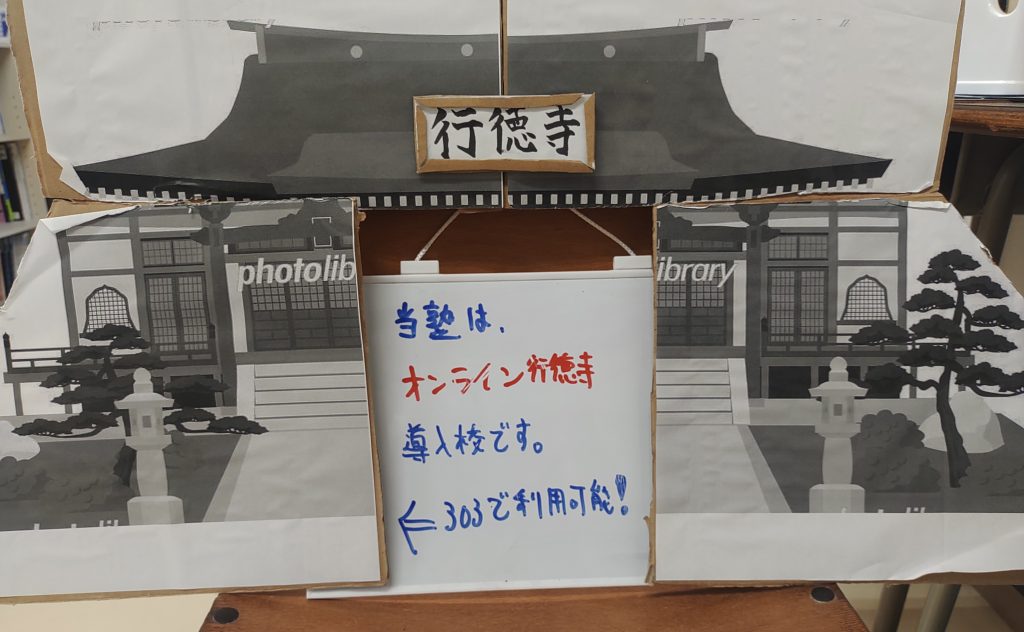 行徳寺
photolib
ibrary
当塾は、
オンライン行徳寺
導入校です。
←303で利用可能!